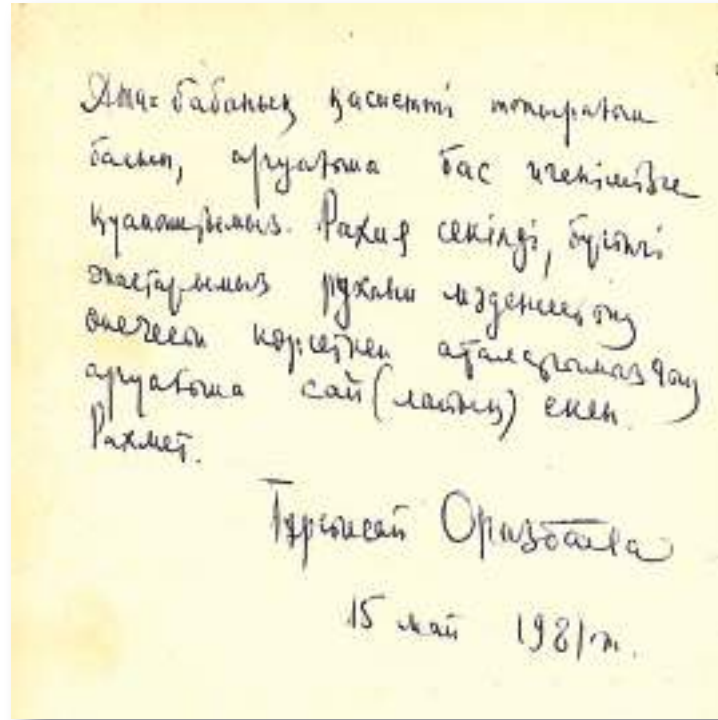 Ата-бабаның қасиетті топырағын
басып, аруағына бас игенімізге
қуаныштымыз. Рахия секілді, бүгінгі
жастарымыз рухани мәдениеттің
көрсеткен аталарымыздың
аруағына сай (лайық) екен.
Рахмет.
Тұрсынай Оразбаева
15 май 1981 ж.